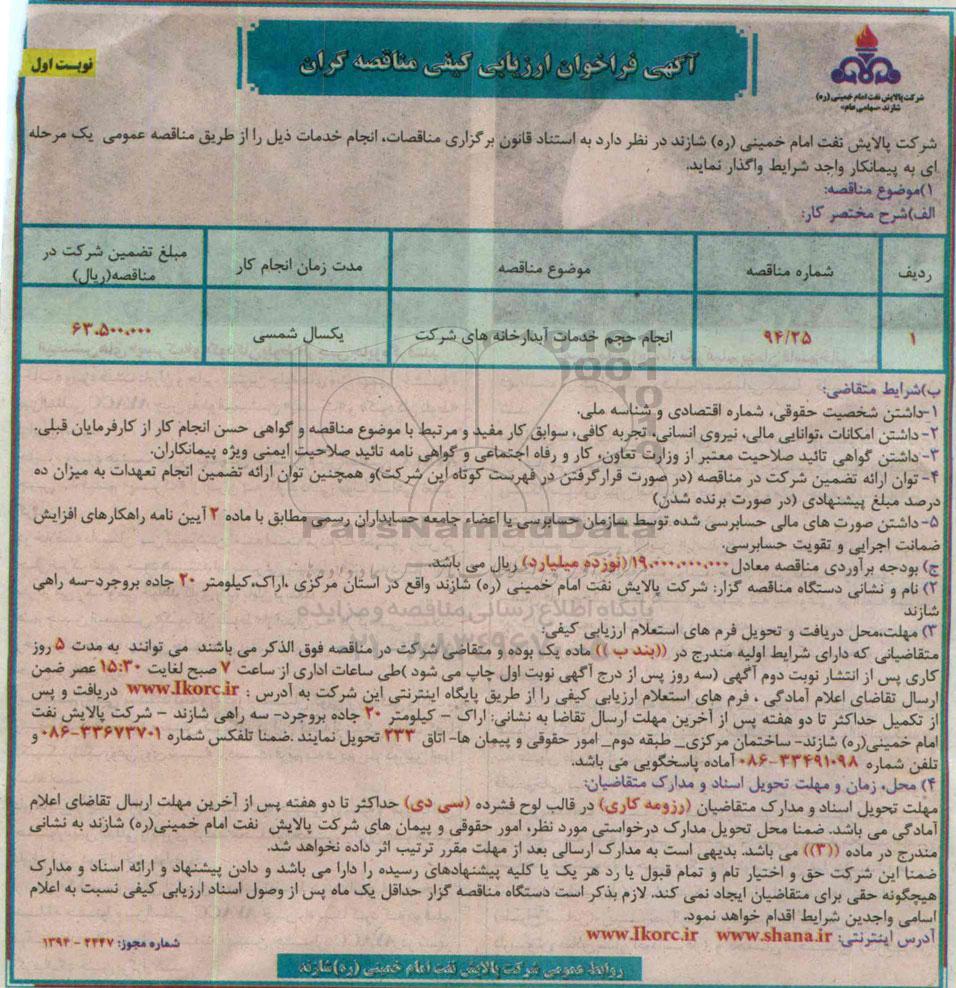 نوبت اول
آگهی فراخوان ارزیابی کیفی مناقصه گران
شرکت پالایش نفت امام خمینی (ره)
شازند «سهامی عام»
شرکت پالایش نفت امام خمینی (ره) شازند در نظر دارد به استناد قانون برگزاری مناقصات، انجام خدمات ذیل را از طریق مناقصه عمومی یک مرحله
ای به پیمانکار واجد شرایط واگذار نماید.
۱)موضوع مناقصه:
الف)شرح مختصر کار:
ردیف شماره مناقصه موضوع مناقصه مدت زمان انجام کار مبلغ تضمین شرکت در
مناقصه(ریال)
۱ ۹۴/۲۵ انجام حجم خدمات آبدارخانه های شرکت یکسال شمسی ۶۳.۵۰۰.۰۰۰
ب)شرایط متقاضی:
۱-داشتن شخصیت حقوقی، شماره اقتصادی و شناسه ملی.
۲- داشتن امکانات ،توانایی مالی، نیروی انسانی، تجربه کافی، سوابق کار مفید و مرتبط با موضوع مناقصه و گواهی حسن انجام کار از کارفرمایان قبلی.
۳- داشتن گواهی تائید صلاحیت معتبر از وزارت تعاون، کار و رفاه اجتماعی و گواهی نامه تائید صلاحیت ایمنی ویژه پیمانکاران.
۴- توان ارائه تضمین شرکت در مناقصه (در صورت قرارگرفتن در فهرست کوتاه این شرکت)و همچنین توان ارائه تضمین انجام تعهدات به میزان ده
درصد مبلغ پیشنهادی (در صورت برنده شدن)
۵- داشتن صورت های مالی حسابرسی شده توسط سازمان حسابرسی یا اعضاء جامعه حسابداران رسمی مطابق با ماده ۲ آیین نامه راهکارهای افزایش
ضمانت اجرایی و تقویت حسابرسی.
ج) بودجه برآوردی مناقصه معادل ۱۹.۰۰۰.۰۰۰.۰۰۰ (نوزده میلیارد) ریال می باشد.
۲) نام و نشانی دستگاه مناقصه گزار: شرکت پالایش نفت امام خمینی (ره) شازند واقع در استان مرکزی ،اراک،کیلومتر ۲۰ جاده بروجرد-سه راهی
شازند
۳) مهلت،محل دریافت و تحویل فرم های استعلام ارزیابی کیفی:
متقاضیانی که دارای شرایط اولیه مندرج در ((بند ب )) ماده یک بوده و متقاضی شرکت در مناقصه فوق الذکر می باشند می توانند به مدت ۵ روز
کاری پس از انتشار نوبت دوم آگهی (سه روز پس از درج آگهی نوبت اول چاپ می شود )طی ساعات اداری از ساعت ۷ صبح لغایت ۱۵:۳۰ عصر ضمن
ارسال تقاضای اعلام آمادگی ، فرم های استعلام ارزیابی کیفی را از طریق پایگاه اینترنتی این شرکت به آدرس : www.Ikorc.ir دریافت و پس
از تکمیل حداکثر تا دو هفته پس از آخرین مهلت ارسال تقاضا به نشانی: اراک – کیلومتر ۲۰ جاده بروجرد- سه راهی شازند – شرکت پالایش نفت
امام خمینی(ره) شازند- ساختمان مرکزی_ طبقه دوم_ امور حقوقی و پیمان ها- اتاق ۲۳۳ تحویل نمایند .ضمنا تلفکس شماره ۳۳۶۷۳۷۰۱-۰۸۶ و
تلفن شماره ۳۳۴۹۱۰۹۸-۰۸۶ آماده پاسخگویی می باشد.
۴) محل، زمان و مهلت تحویل اسناد و مدارک متقاضیان:
مهلت تحویل اسناد و مدارک متقاضیان (رزومه کاری) در قالب لوح فشرده (سی دی) حداکثر تا دو هفته پس از آخرین مهلت ارسال تقاضای اعلام
آمادگی می باشد. ضمنا محل تحویل مدارک درخواستی مورد نظر، امور حقوقی و پیمان های شرکت پالایش نفت امام خمینی(ره) شازند به نشانی
مندرج در ماده ((۳)) می باشد. بدیهی است به مدارک ارسالی بعد از مهلت مقرر ترتیب اثر داده نخواهد شد.
ضمنا این شرکت حق و اختیار تام و تمام قبول یا رد هر یک یا کلیه پیشنهادهای رسیده را دارا می باشد و دادن پیشنهاد و ارائه اسناد و مدارک
هیچگونه حقی برای متقاضیان ایجاد نمی کند. لازم بذکر است دستگاه مناقصه گزار حداقل یک ماه پس از وصول اسناد ارزیابی کیفی نسبت به اعلام
اسامی واجدین شرایط اقدام خواهد نمود.
آدرس اینترنتی: www.shana.ir www.Ikorc.ir
شماره مجوز: ۲۴۴۷ - ۱۳۹۴
روابط عمومی شرکت پالایش نفت امام خمینی (ره)شازند
ParsNamadData
پایگاه اطلاع رسانی مناقصه و مزایده